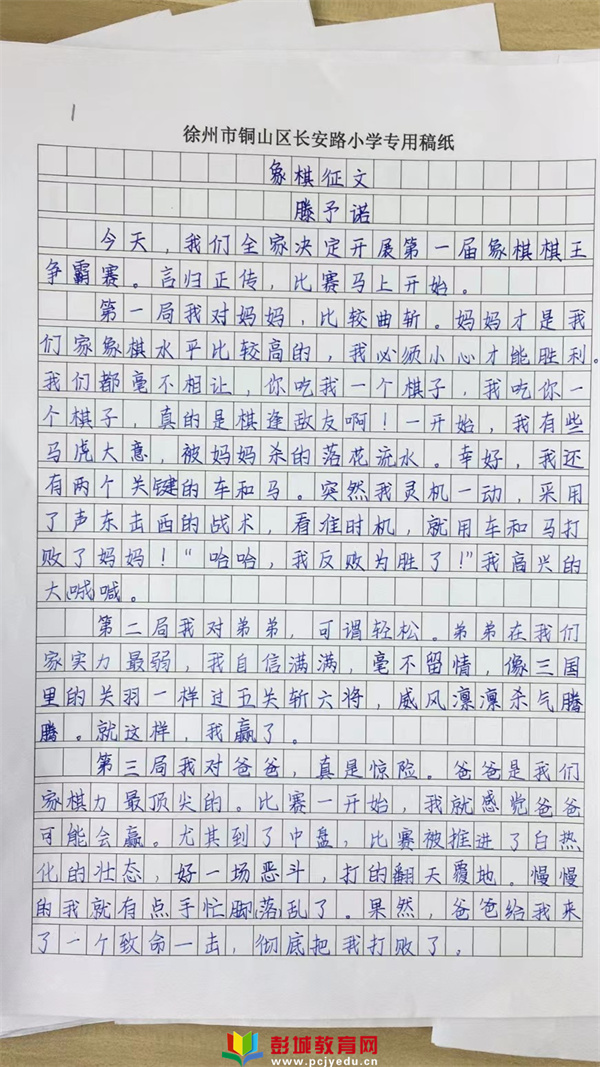 徐州市铜山区长安路小学专用稿纸
象棋征文
滕予诺
今天，我们全家决定开展第一届象棋棋王
争霸赛。言归正传，比赛马上开始。
第一局我对妈妈，比较曲斩。妈妈才是我
们家象棋水平比较高的，我必须小心才能胜利。
我们都毫不相让，你吃我一个棋子，我吃你一
个棋子，真的是棋逢敌友啊！一开始，我有些
马虎大意，被妈妈杀的落花流水。幸好，我还
有两个关键的车和马。突然我灵机一动，采用
了声东击西的战术，看准时机，就用车和马打
败了妈妈！“哈哈，我反败为胜了！”我高兴的
大喊喊。
第二局我对弟弟，可谓轻松。弟弟在我们
家实力最弱，我自信满满，毫不留情，像三国
里的关羽一样过五关斩六将，威风凛凛杀气腾
腾。就这样，我赢了。
第三局我对爸爸，真是惊险。爸爸是我们
家棋力最顶尖的。比赛一开始，我就感觉爸爸
可能会赢。尤其到了中盘，比赛被推进了白热
化的壮态，好一场恶斗，打的翻天覆地。慢慢
的我就有点手忙脚落乱了。果然，爸爸给我来
了一个致命一击，彻底把我打败了。
彭城教育网
www.pcjyedu.cn